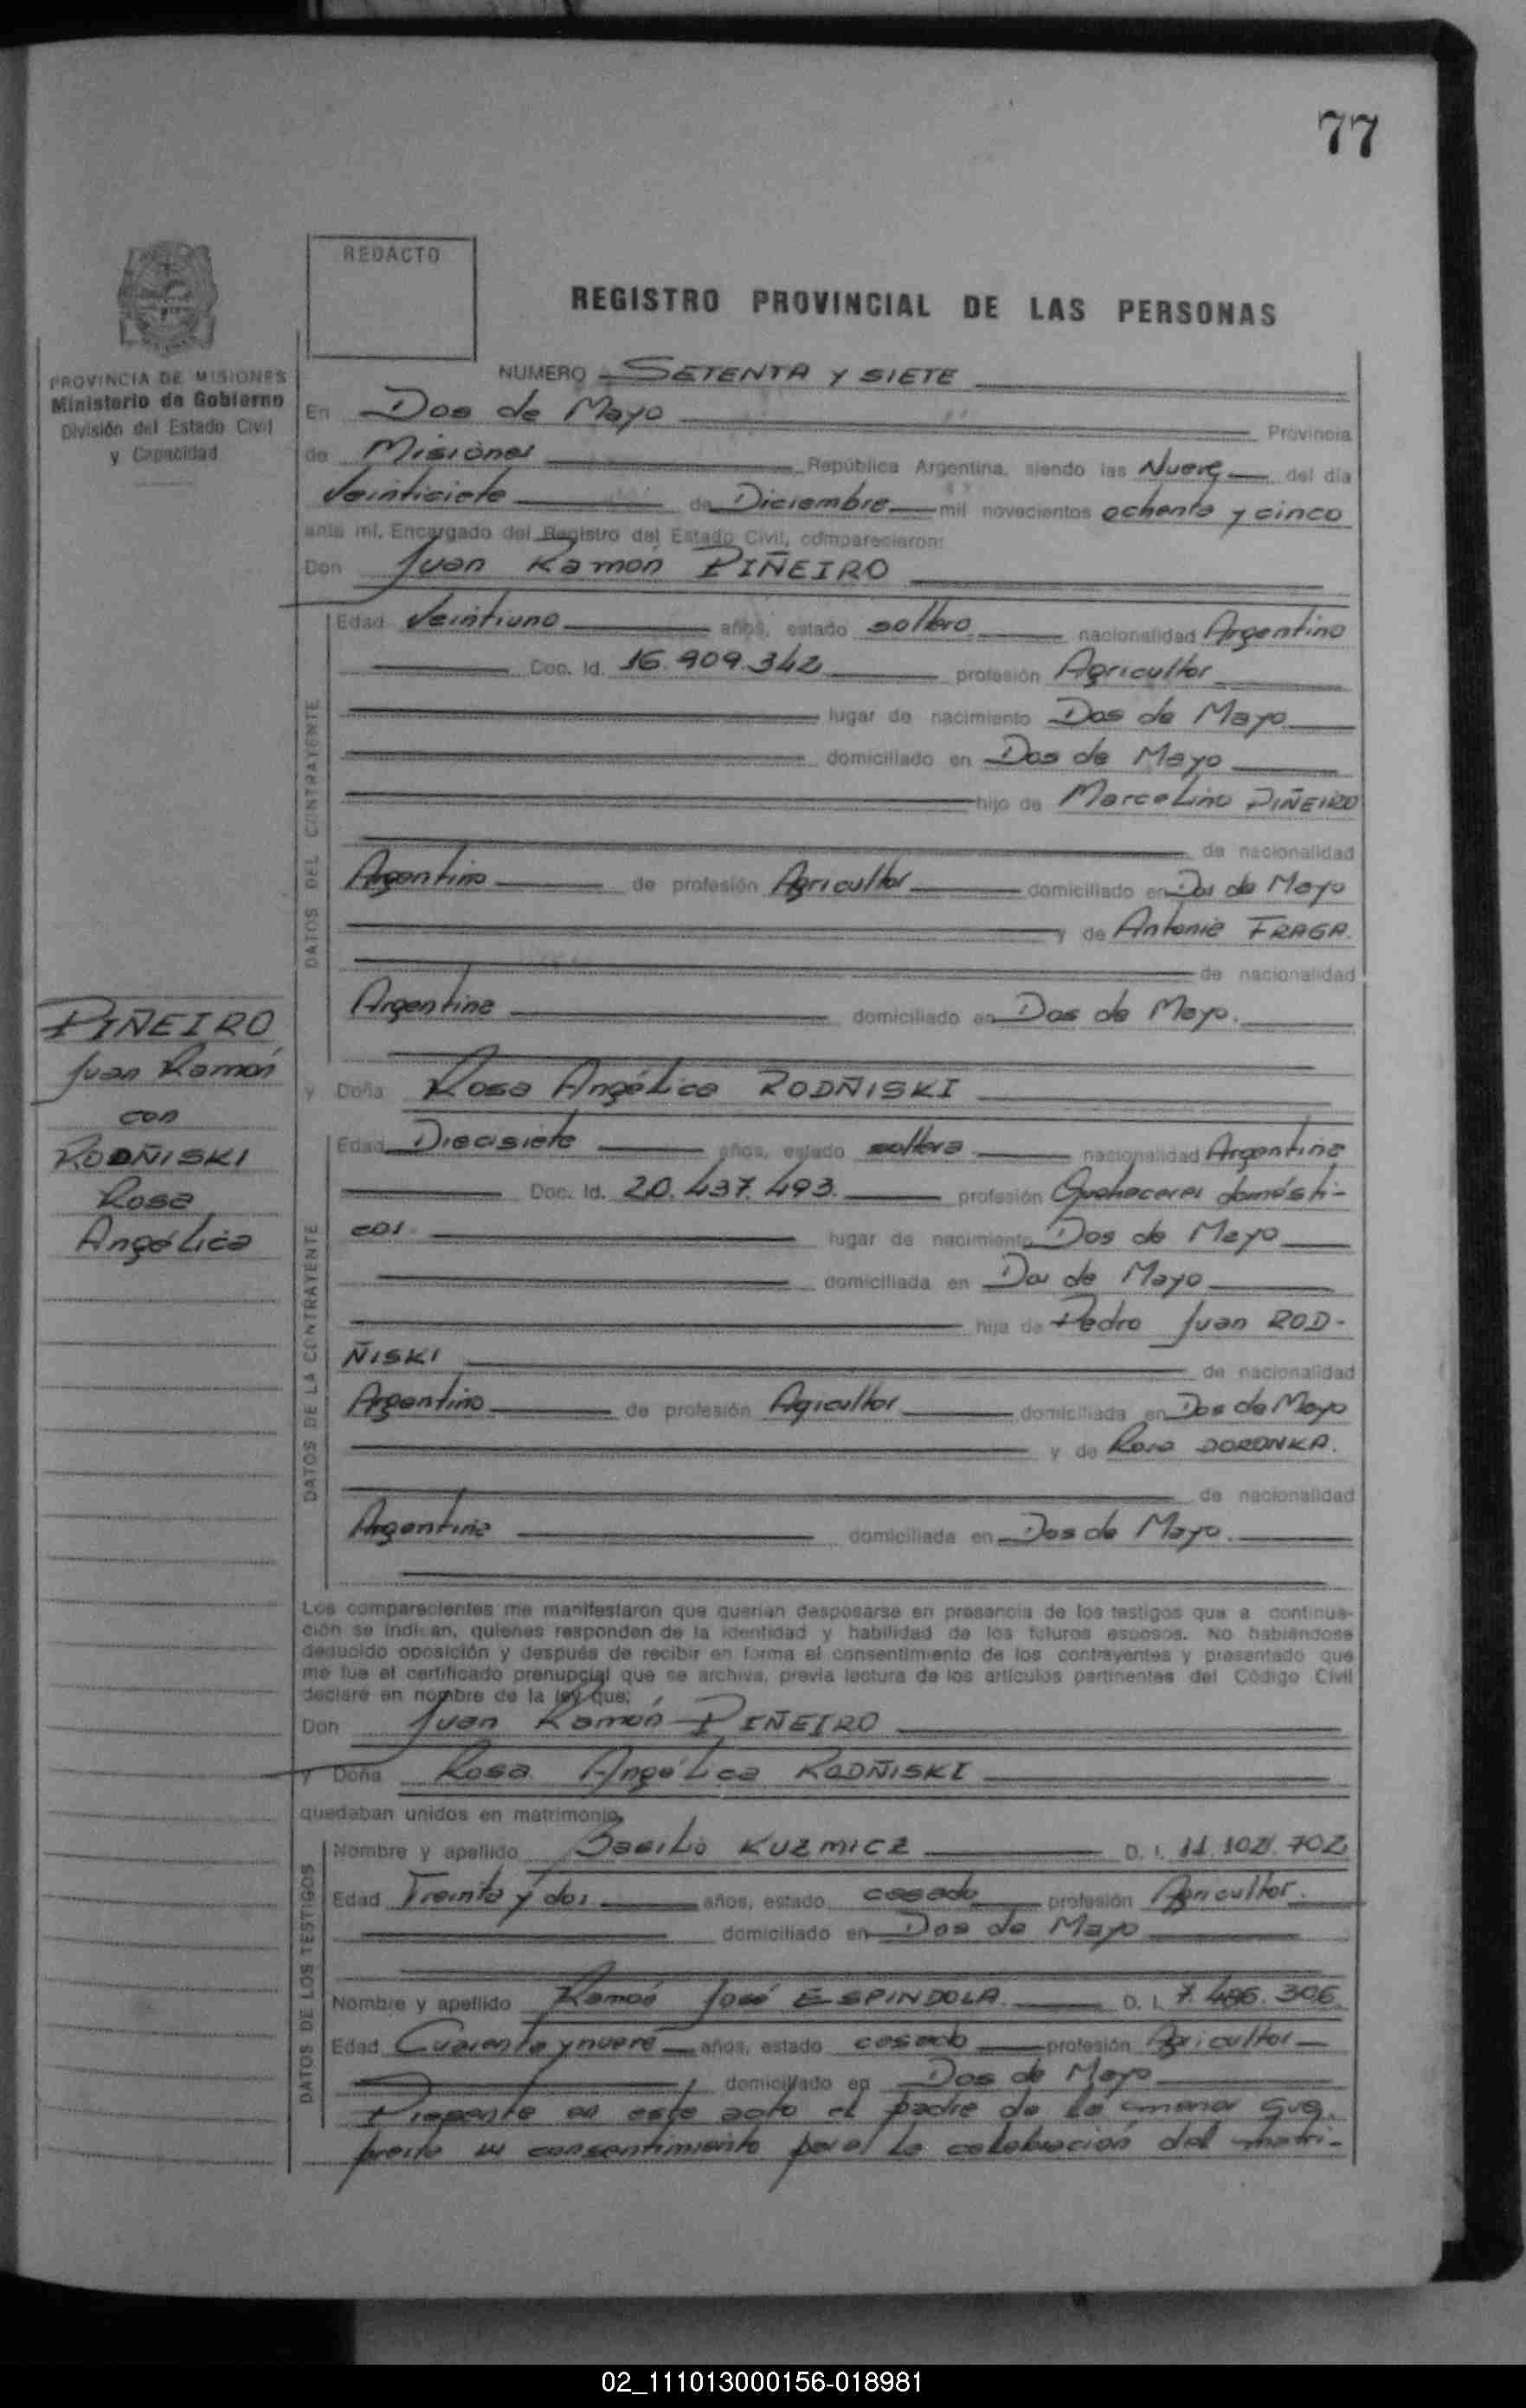 77
REDACTO
REGISTRO PROVINCIAL DE LAS PERSONAS
PROVINCIA DE MISIONES
Ministerio de Gobierno
División del Estado Civil
y Capacidad
NUMERO SETENTA Y SIETE
En Dos de Mayo Provincia
de Misiones República Argentina, siendo las Nueve del día
Veinticiete de Diciembre mil novecientos ochenta y cinco
ante mí, Encargado del Registro del Estado Civil, comparecieron:
Don Juan Ramón PIÑEIRO
DATOS DEL CONTRAYENTE
Edad Veintiuno años, estado soltero nacionalidad Argentino
Doc. Id. 16.909.342 profesión Agricultor
lugar de nacimiento Dos de Mayo
domiciliado en Dos de Mayo
hijo de Marcelino PIÑEIRO
de nacionalidad
Argentino de profesión Agricultor domiciliado en Dos de Mayo
y de Antonia FRAGA.
de nacionalidad
Argentina domiciliado en Dos de Mayo.
PIÑEIRO
Juan Ramón
con
RODÑISKI
Rosa
Angélica
y Doña Rosa Angélica RODÑISKI
DATOS DE LA CONTRAYENTE
Edad Diecisiete años, estado soltera nacionalidad Argentina
Doc. Id. 20.437.493. profesión Quehaceres domésti-
cos. lugar de nacimiento Dos de Mayo
domiciliada en Dos de Mayo
hija de Pedro Juan ROD-
ÑISKI de nacionalidad
Argentino de profesión Agricultor domiciliada en Dos de Mayo
y de Rosa DORONKA.
de nacionalidad
Argentina domiciliada en Dos de Mayo.
Los comparecientes me manifestaron que querían desposarse en presencia de los testigos que a continua-
ción se indican, quienes responden de la identidad y habilidad de los futuros esposos. No habiéndose
deducido oposición y después de recibir en forma el consentimiento de los contrayentes y presentado que
me fue el certificado prenupcial que se archiva, previa lectura de los artículos pertinentes del Código Civil
declaré en nombre de la ley que:
Don Juan Ramón PIÑEIRO
y Doña Rosa Angélica RODÑISKI
quedaban unidos en matrimonio.
DATOS DE LOS TESTIGOS
Nombre y apellido Basilio KUZMICZ D. I. 11.102.702
Edad Treinta y dos años, estado casado profesión Agricultor.
domiciliado en Dos de Mayo
Nombre y apellido Ramón José ESPINDOLA D. I. 7.486.306
Edad Cuarenta y nueve años, estado casado profesión Agricultor
domiciliado en Dos de Mayo
Presente en este acto el padre de la menor que
presta su consentimiento para la celebración del matri-
02_111013000156-018981